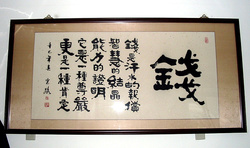 錢
錢是汗水的報償
智慧的結晶
能力的證明
它是一種尊嚴
更是一種肯定